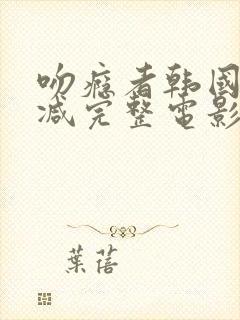 吻瘾者韩国
减完整电影
葉蓓